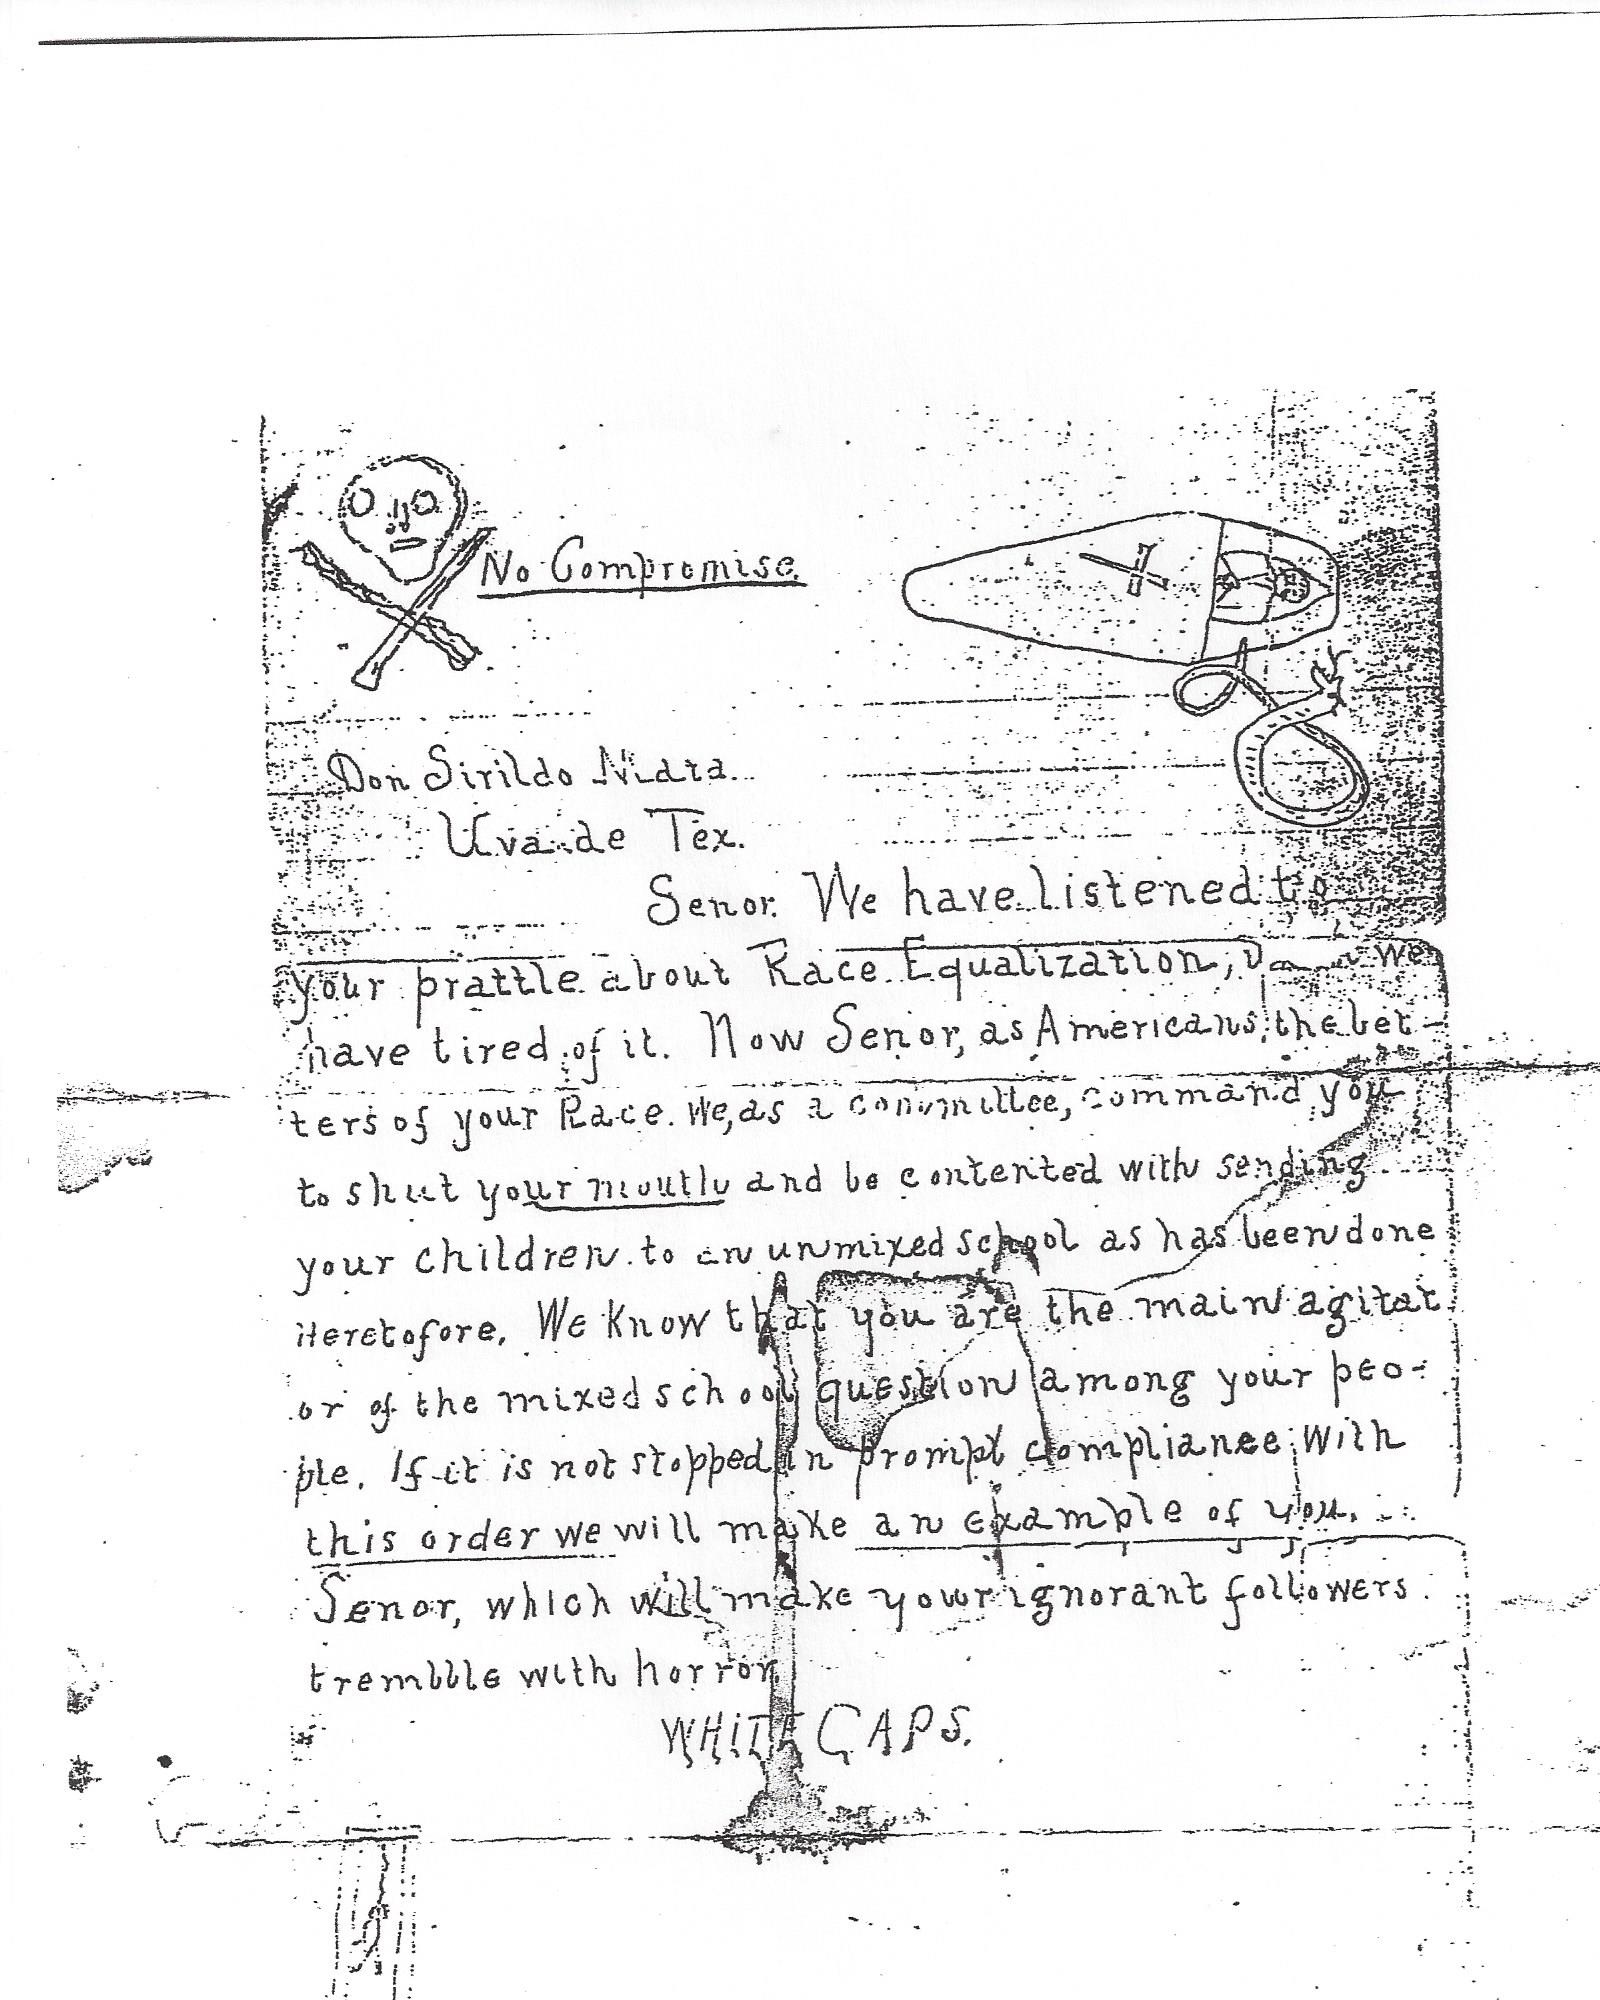 No Compromise.
Don Sirildo Mata.
Uvalde Tex.
Senor. We have listened to
your prattle about Race Equalization, we
have tired of it. Now Senor, as Americans, the bet-
ters of your Race. We, as a committee, command you
to shut your mouth and be contented with sending
your children to an unmixed school as has been done
Heretofore. We know that you are the main agitat
or of the mixed school question among your peo-
ple. If it is not stopped in prompt compliance with
this order we will make an example of you.
Senor, which will make your ignorant followers
tremble with horror.
WHITE CAPS.